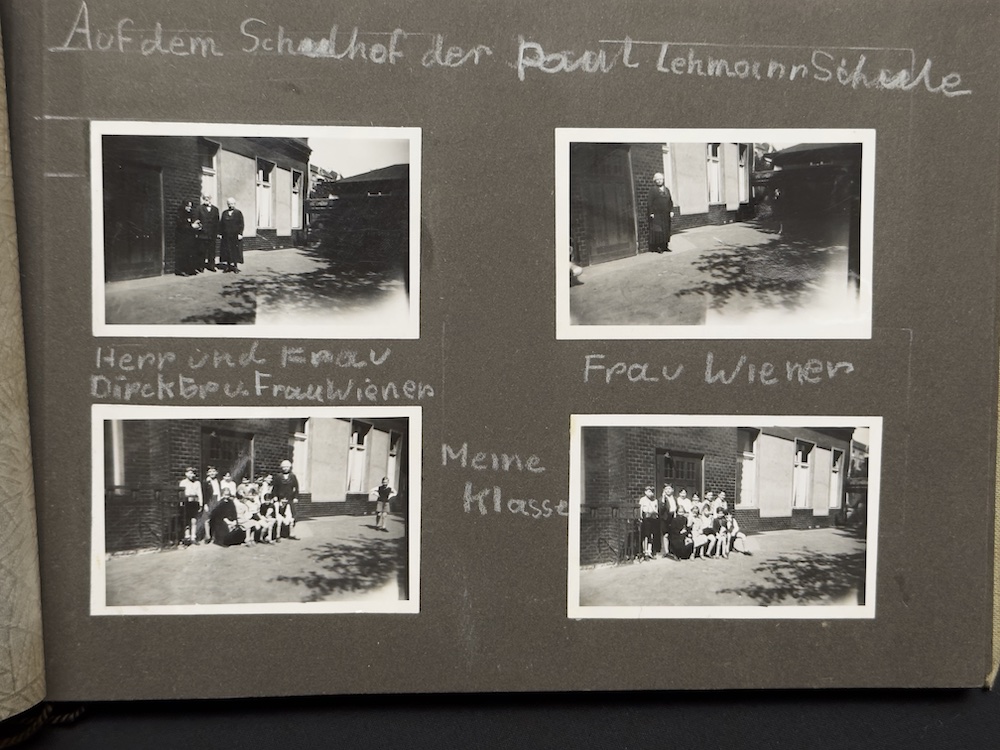 Auf dem Schulhof der Paul Lehmann Schule
Herr und Frau
Direktor u. Frau Wiener
Frau Wiener
Meine
Klasse